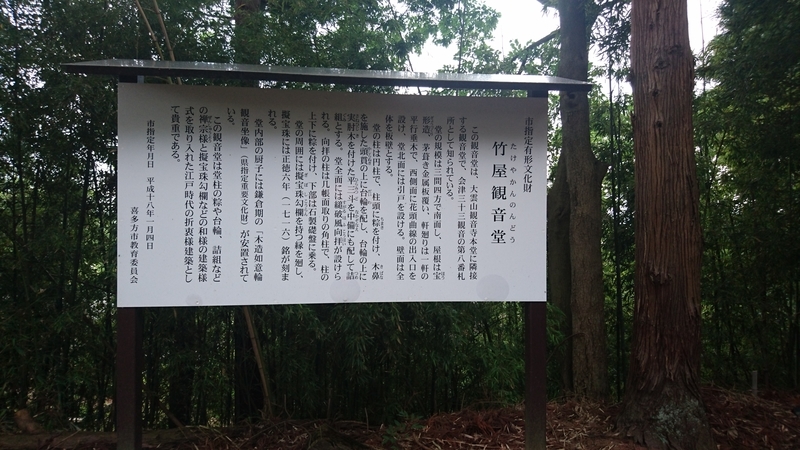 市指定有形文化財
竹屋観音堂
たけやかんのんどう
この観音堂は、大雲山観音寺本堂に隣接
する観音堂で、会津三十三観音の第八番札
所として知られている。
堂の規模は三間四方で南面し、屋根は宝
形造、茅葺き金属板覆い、軒廻りは一軒の
平行垂木で、西側面に花頭曲線の出入口を
設け、堂北面には引戸を設ける。壁面は全
体を板壁とする。
堂の柱は円柱で、柱頭に粽を付け、木鼻
を施した頭貫の上に台輪を配し、台輪の上に
実肘木を付けた平三斗を中備にも配して詰
組とする。堂全面には縋破風向拝が設けら
れる。向拝の柱は几帳面取りの角柱で、柱の
上下に粽を付け、下部は石製礎盤に乗る。
堂の周囲には擬宝珠勾欄を持つ縁を廻し、
擬宝珠には正徳六年（一七一六）銘が刻ま
れる。
堂内部の厨子には鎌倉期の「木造如意輪
観音坐像」（県指定重要文化財）が安置されて
いる。
この観音堂は堂柱の粽や台輪、詰組など
の禅宗様と擬宝珠勾欄などの和様の建築様
式を取り入れた江戸時代の折衷様建築とし
て貴重である。
市指定年月日　平成十八年一月四日
喜多方市教育委員会